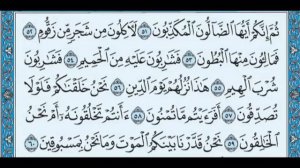 ثُمَّ إِنَّكُمْ أَيُّهَا ٱلضَّآلُّونَ ٱلْمُكَذِّبُونَ ٥١ لَءَاكِلُونَ مِن شَجَرٍ مِّن زَقُّومٍ ٥٢
فَمَالِـُٔونَ مِنْهَا ٱلْبُطُونَ ٥٣ فَشَٰرِبُونَ عَلَيْهِ مِنَ ٱلْحَمِيمِ ٥٤ فَشَٰرِبُونَ
شُرْبَ ٱلْهِيمِ ٥٥ هَٰذَا نُزُلُهُمْ يَوْمَ ٱلدِّينِ ٥٦ نَحْنُ خَلَقْنَٰكُمْ فَلَوْلَا
تُصَدِّقُونَ ٥٧ أَفَرَءَيْتُم مَّا تُمْنُونَ ٥٨ ءَأَنتُمْ تَخْلُقُونَهُۥٓ أَمْ نَحْنُ
ٱلْخَٰلِقُونَ ٥٩ نَحْنُ قَدَّرْنَا بَيْنَكُمُ ٱلْمَوْتَ وَمَا نَحْنُ بِمَسْبُوقِينَ ٦٠